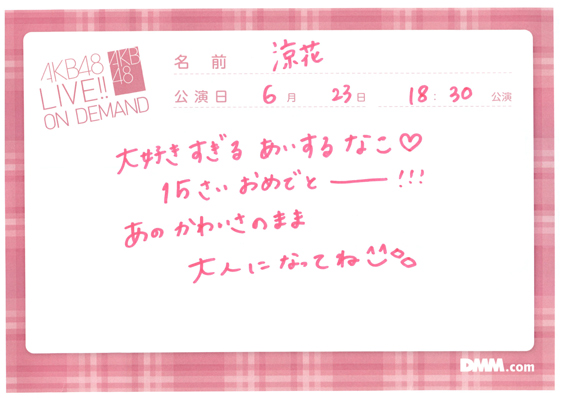 AKB48
LIVE!!
ON DEMAND
AKB
48
名前 涼花
公演日 6月 23日 18:30 公演
大好きすぎる あいする なこ♡
15さい おめでとーーー!!!
あの かわいさのまま
大人に なってね
DMM.com